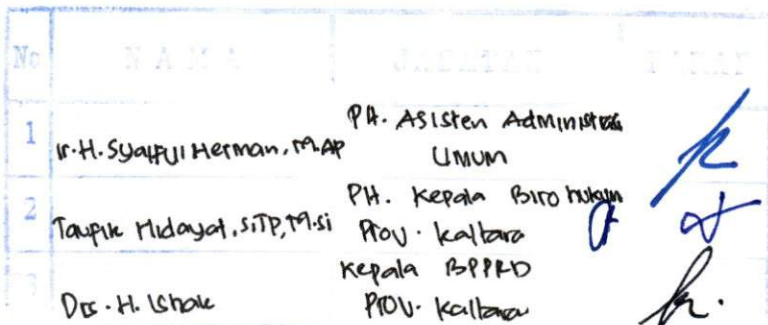 No NAMA JABATAN PARAF
1 Ir. H. Syaiful Herman, M.AP PH. Asisten Administrasi Umum
2 Taufik Hidayat, S.TP, M.Si PH. Kepala Biro hukum Prov. Kaltara
3 Drs. H. Ishak Kepala BPPRD Prov. Kaltara